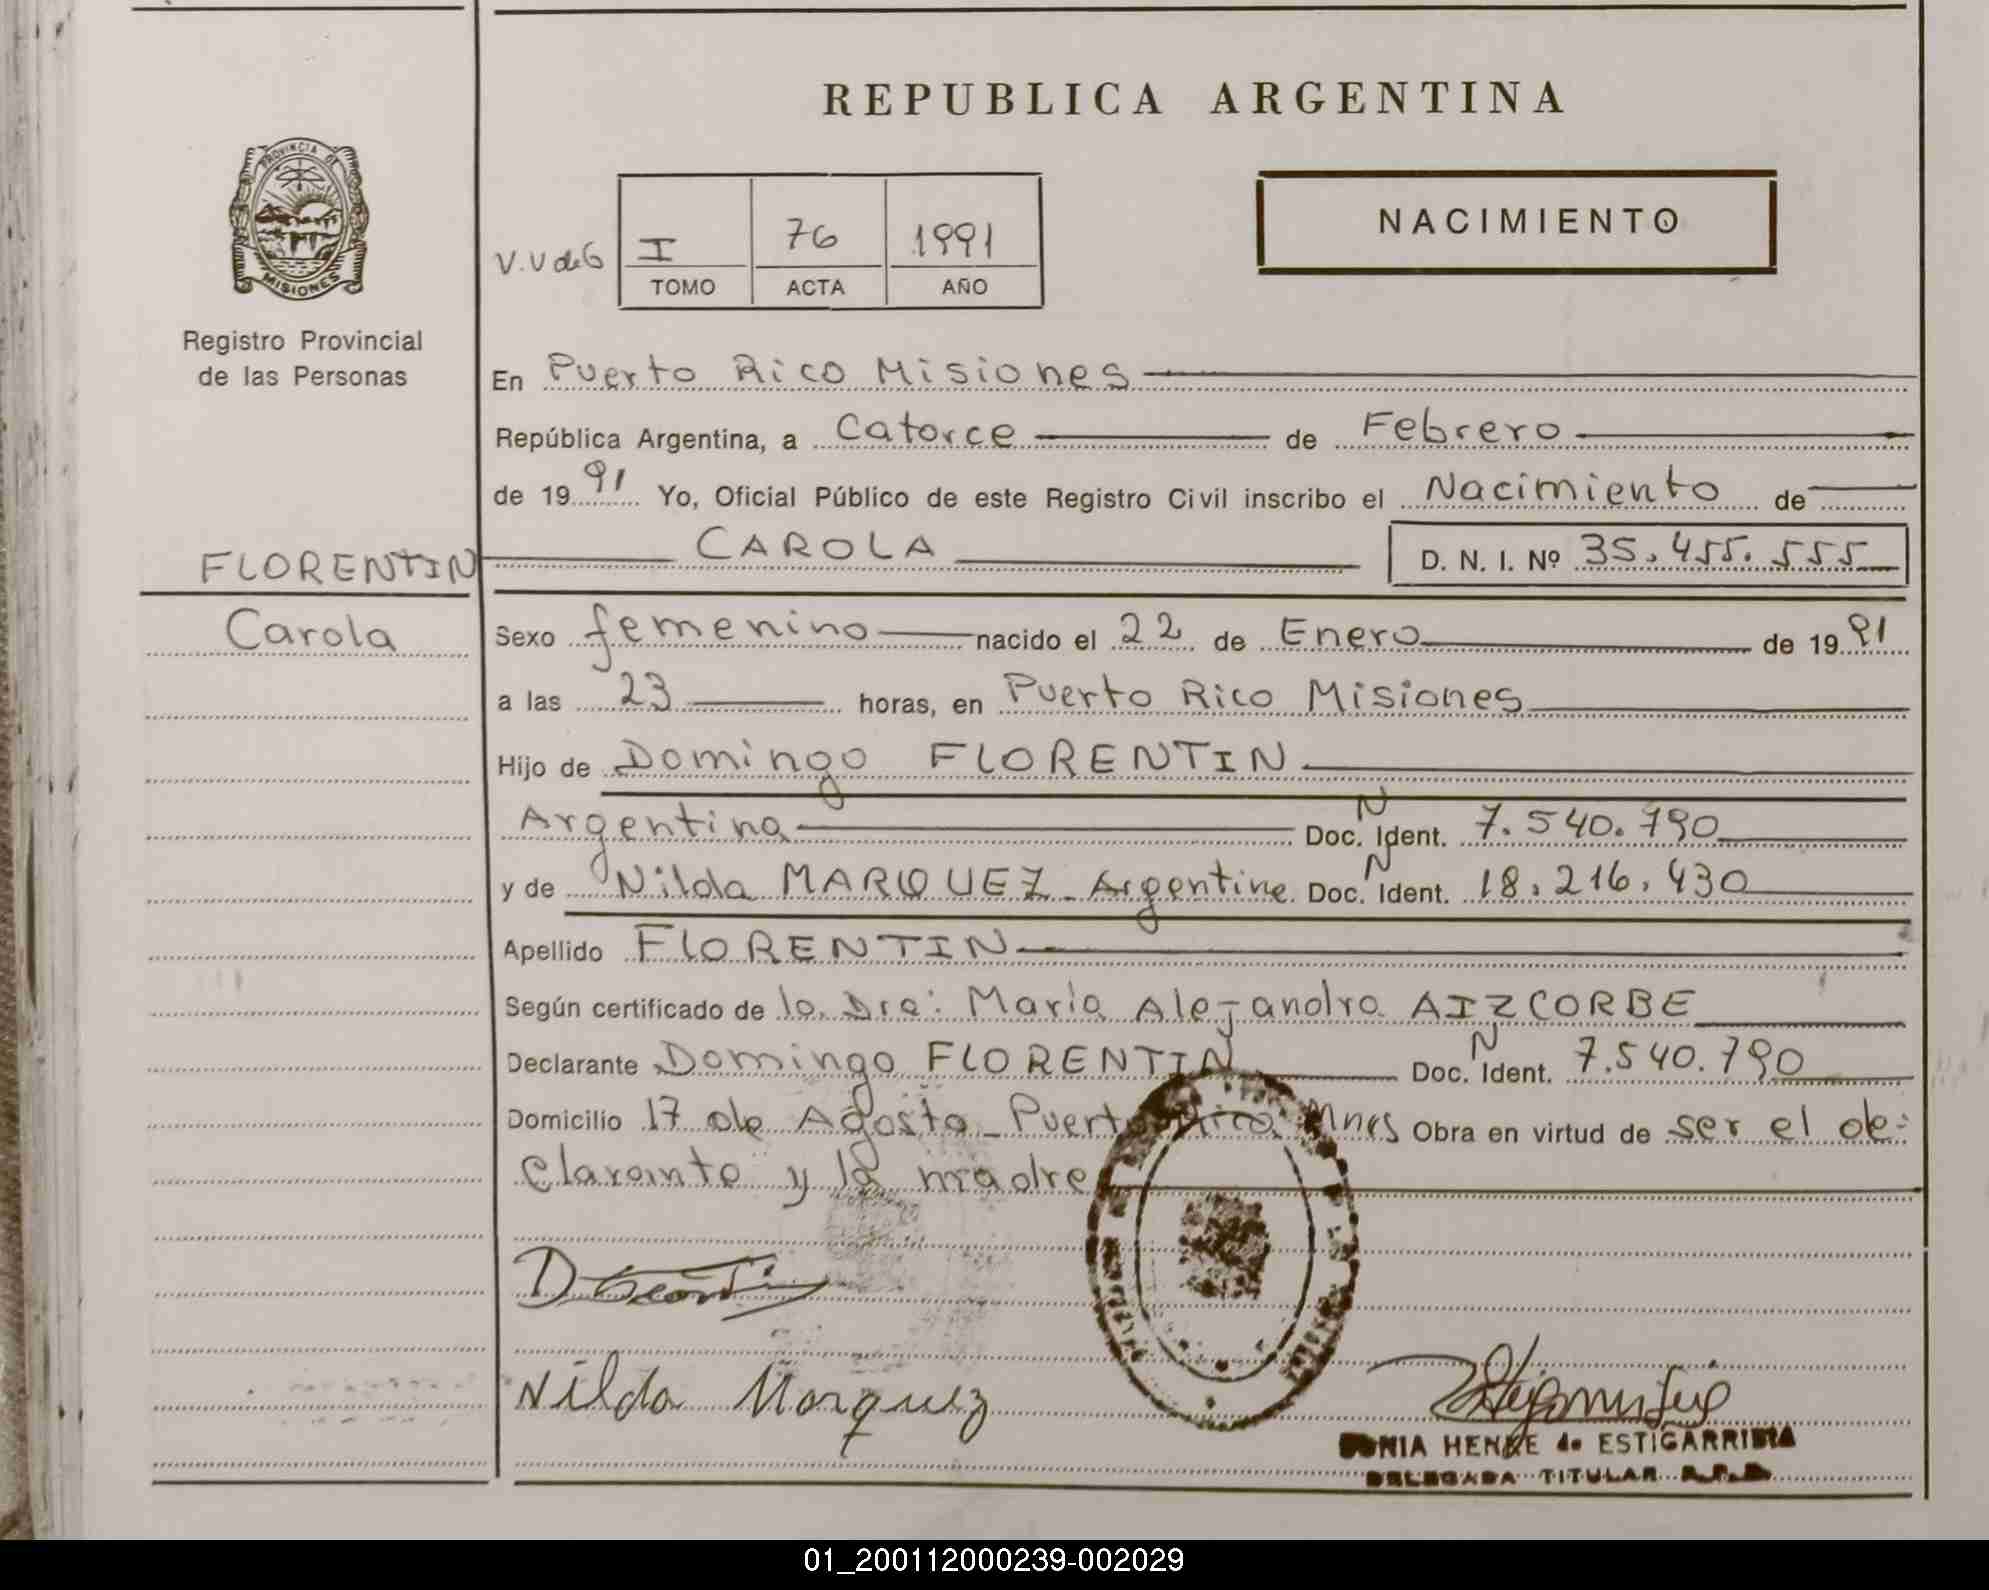 REPUBLICA ARGENTINA
PROVINCIA DE
MISIONES
Registro Provincial
de las Personas
FLORENTIN
Carola
V.V de G
I 76 1991
TOMO ACTA AÑO
NACIMIENTO
En Puerto Rico Misiones
República Argentina, a Catorce de Febrero
de 19 91 Yo, Oficial Público de este Registro Civil inscribo el Nacimiento de
CAROLA D. N. I. Nº 35.455.555
Sexo femenino nacido el 22 de Enero de 19 91
a las 23 horas, en Puerto Rico Misiones
Hijo de Domingo FLORENTIN
Argentina Doc. N Ident. 7.540.790
y de Nilda MARQUEZ - Argentina Doc. N Ident. 18.216.430
Apellido FLORENTIN
Según certificado de la Dra: María Alejandra AIZCORBE
Declarante Domingo FLORENTIN Doc. N Ident. 7.540.790
Domicilio 17 de Agosto - Puerto Rico Mnes Obra en virtud de ser el de-
clarante y la madre
Nilda Marquez
SONIA HENKE de ESTIGARRIBIA
DELEGADA TITULAR R.P.P.
01_200112000239-002029